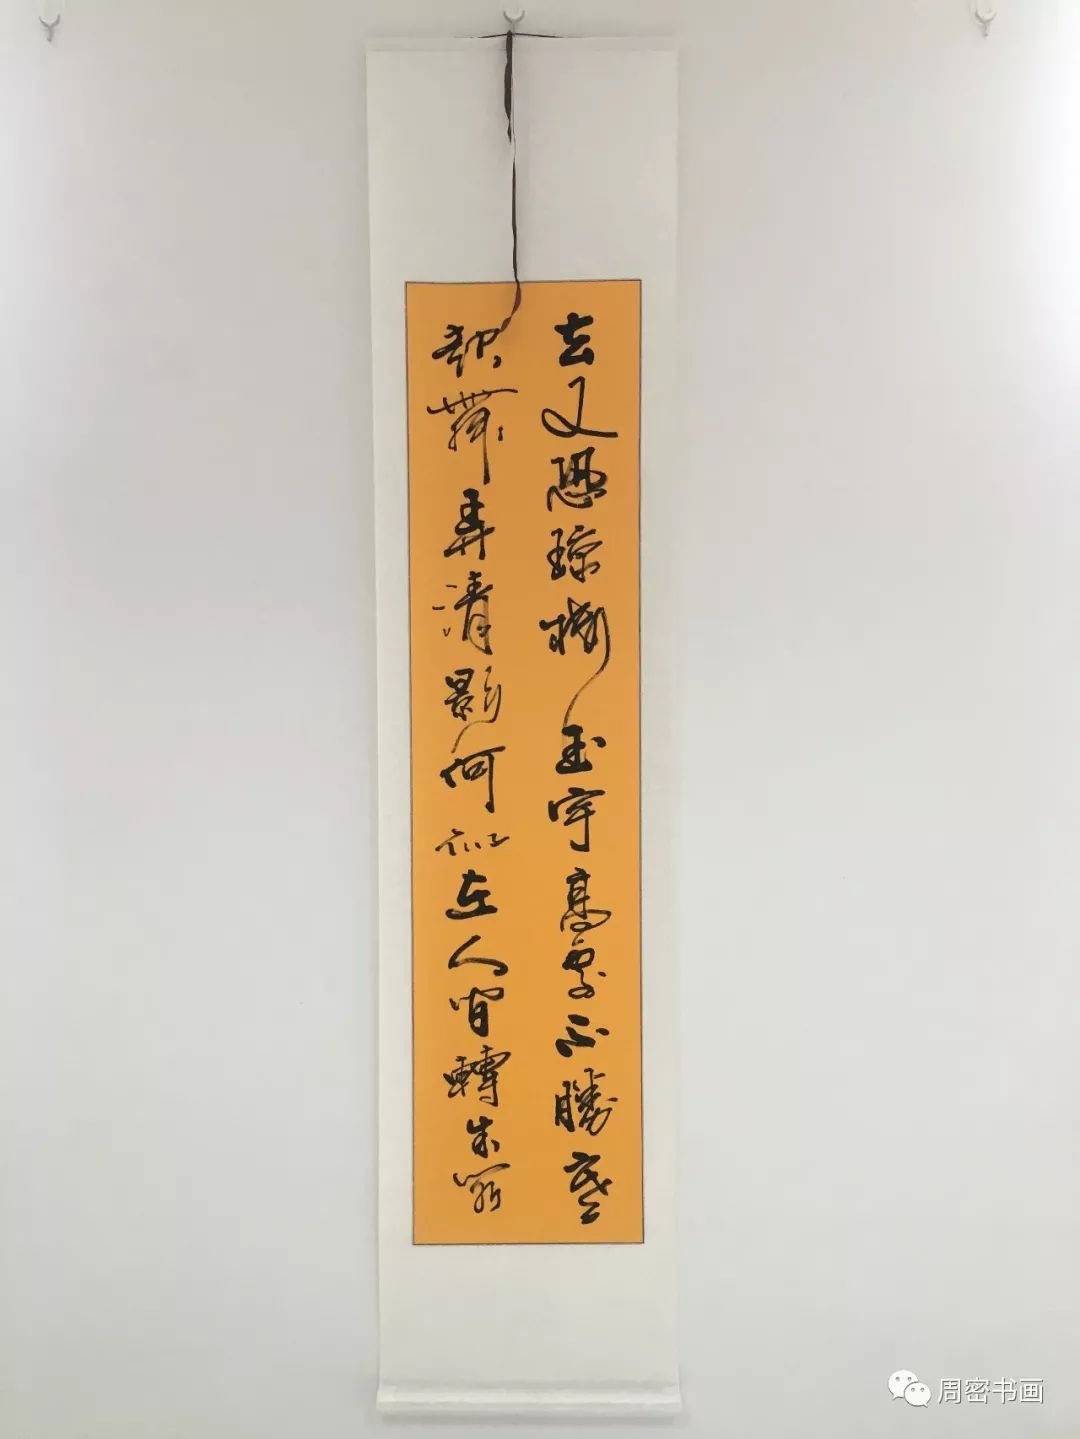 去又恐琼樓玉宇高處不勝寒
起舞弄清影何似在人間轉朱閣
周密书画